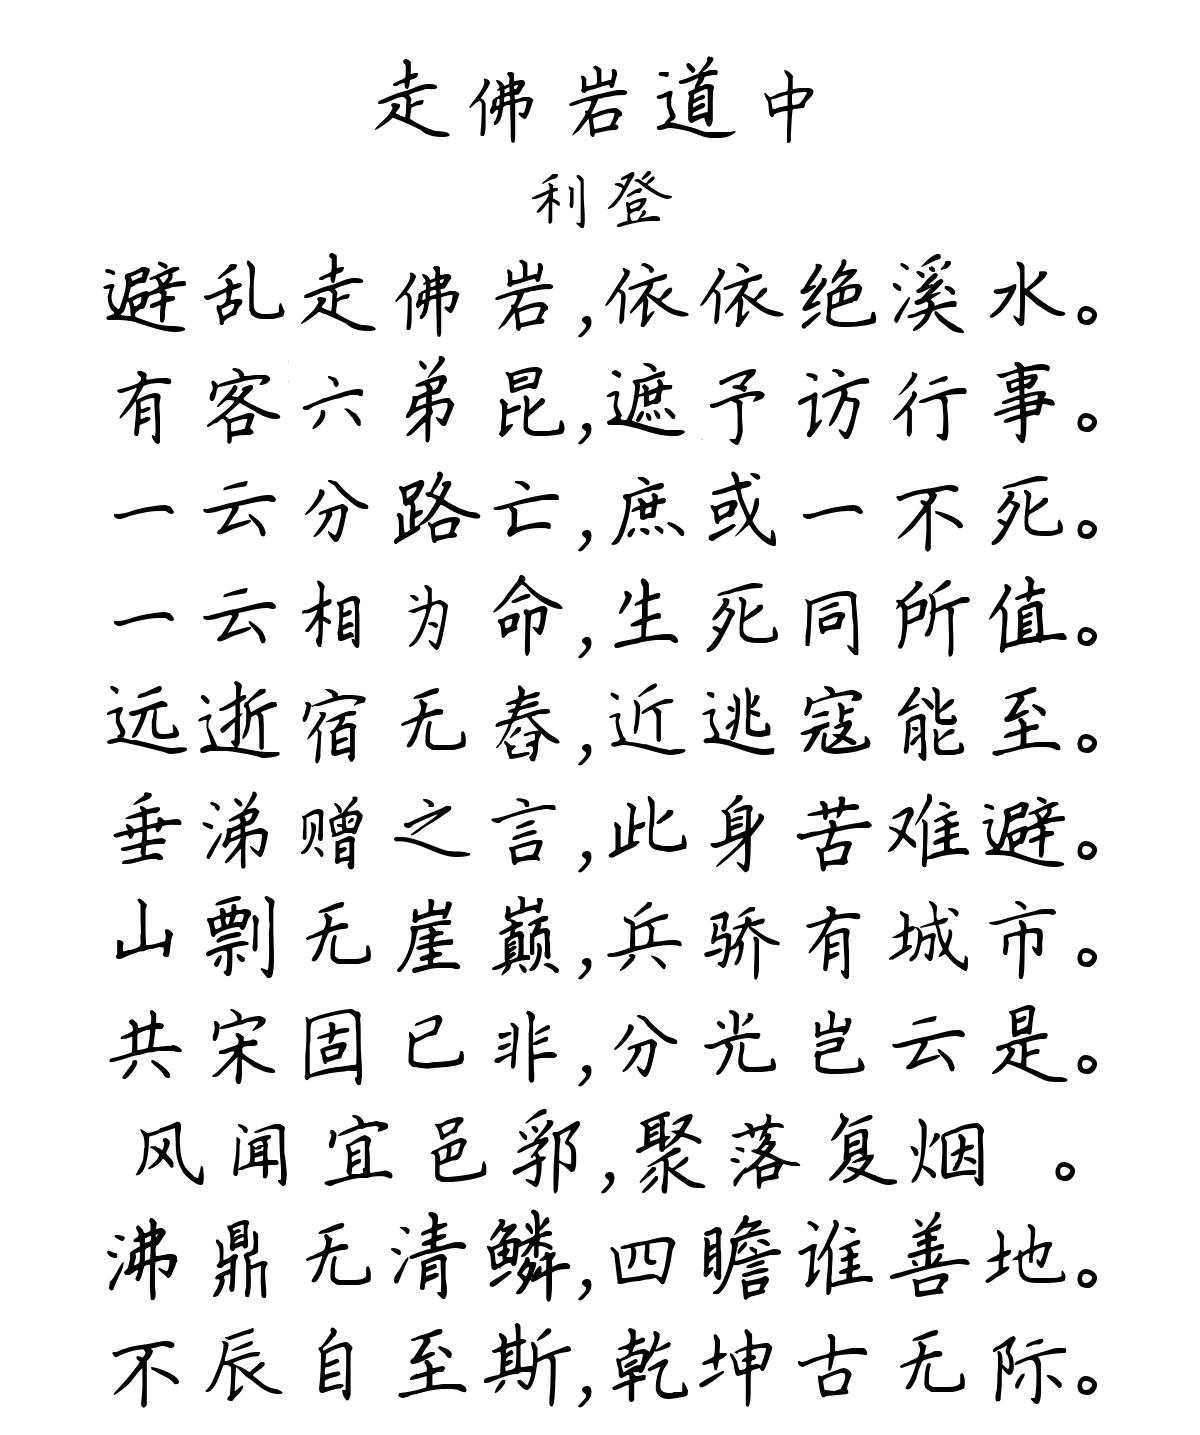 走佛岩道中
利登
避乱走佛岩,依依绝溪水。
有客六弟昆,遮予访行事。
一云分路亡,庶或一不死。
一云相为命,生死同所值。
远逝宿无舂,近逃寇能至。
垂涕赠之言,此身苦难避。
山剽无崖巅,兵骄有城市。
共宋固已非,分光岂云是。
风闻宜邑郛,聚落复烟 。
沸鼎无清鳞,四瞻谁善地。
不辰自至斯,乾坤古无际。